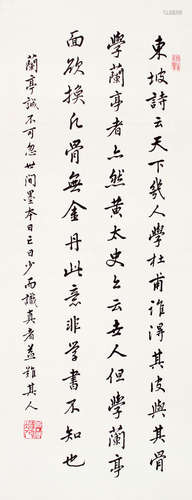 東坡詩云天下幾人學杜甫誰得其皮與其骨
學蘭亭者亦然黃太史亦云世人但學蘭亭
面欲換凡骨無金丹此意非學書不知也
蘭亭誠不可忽世間墨本日亡日少而識真者益難其人